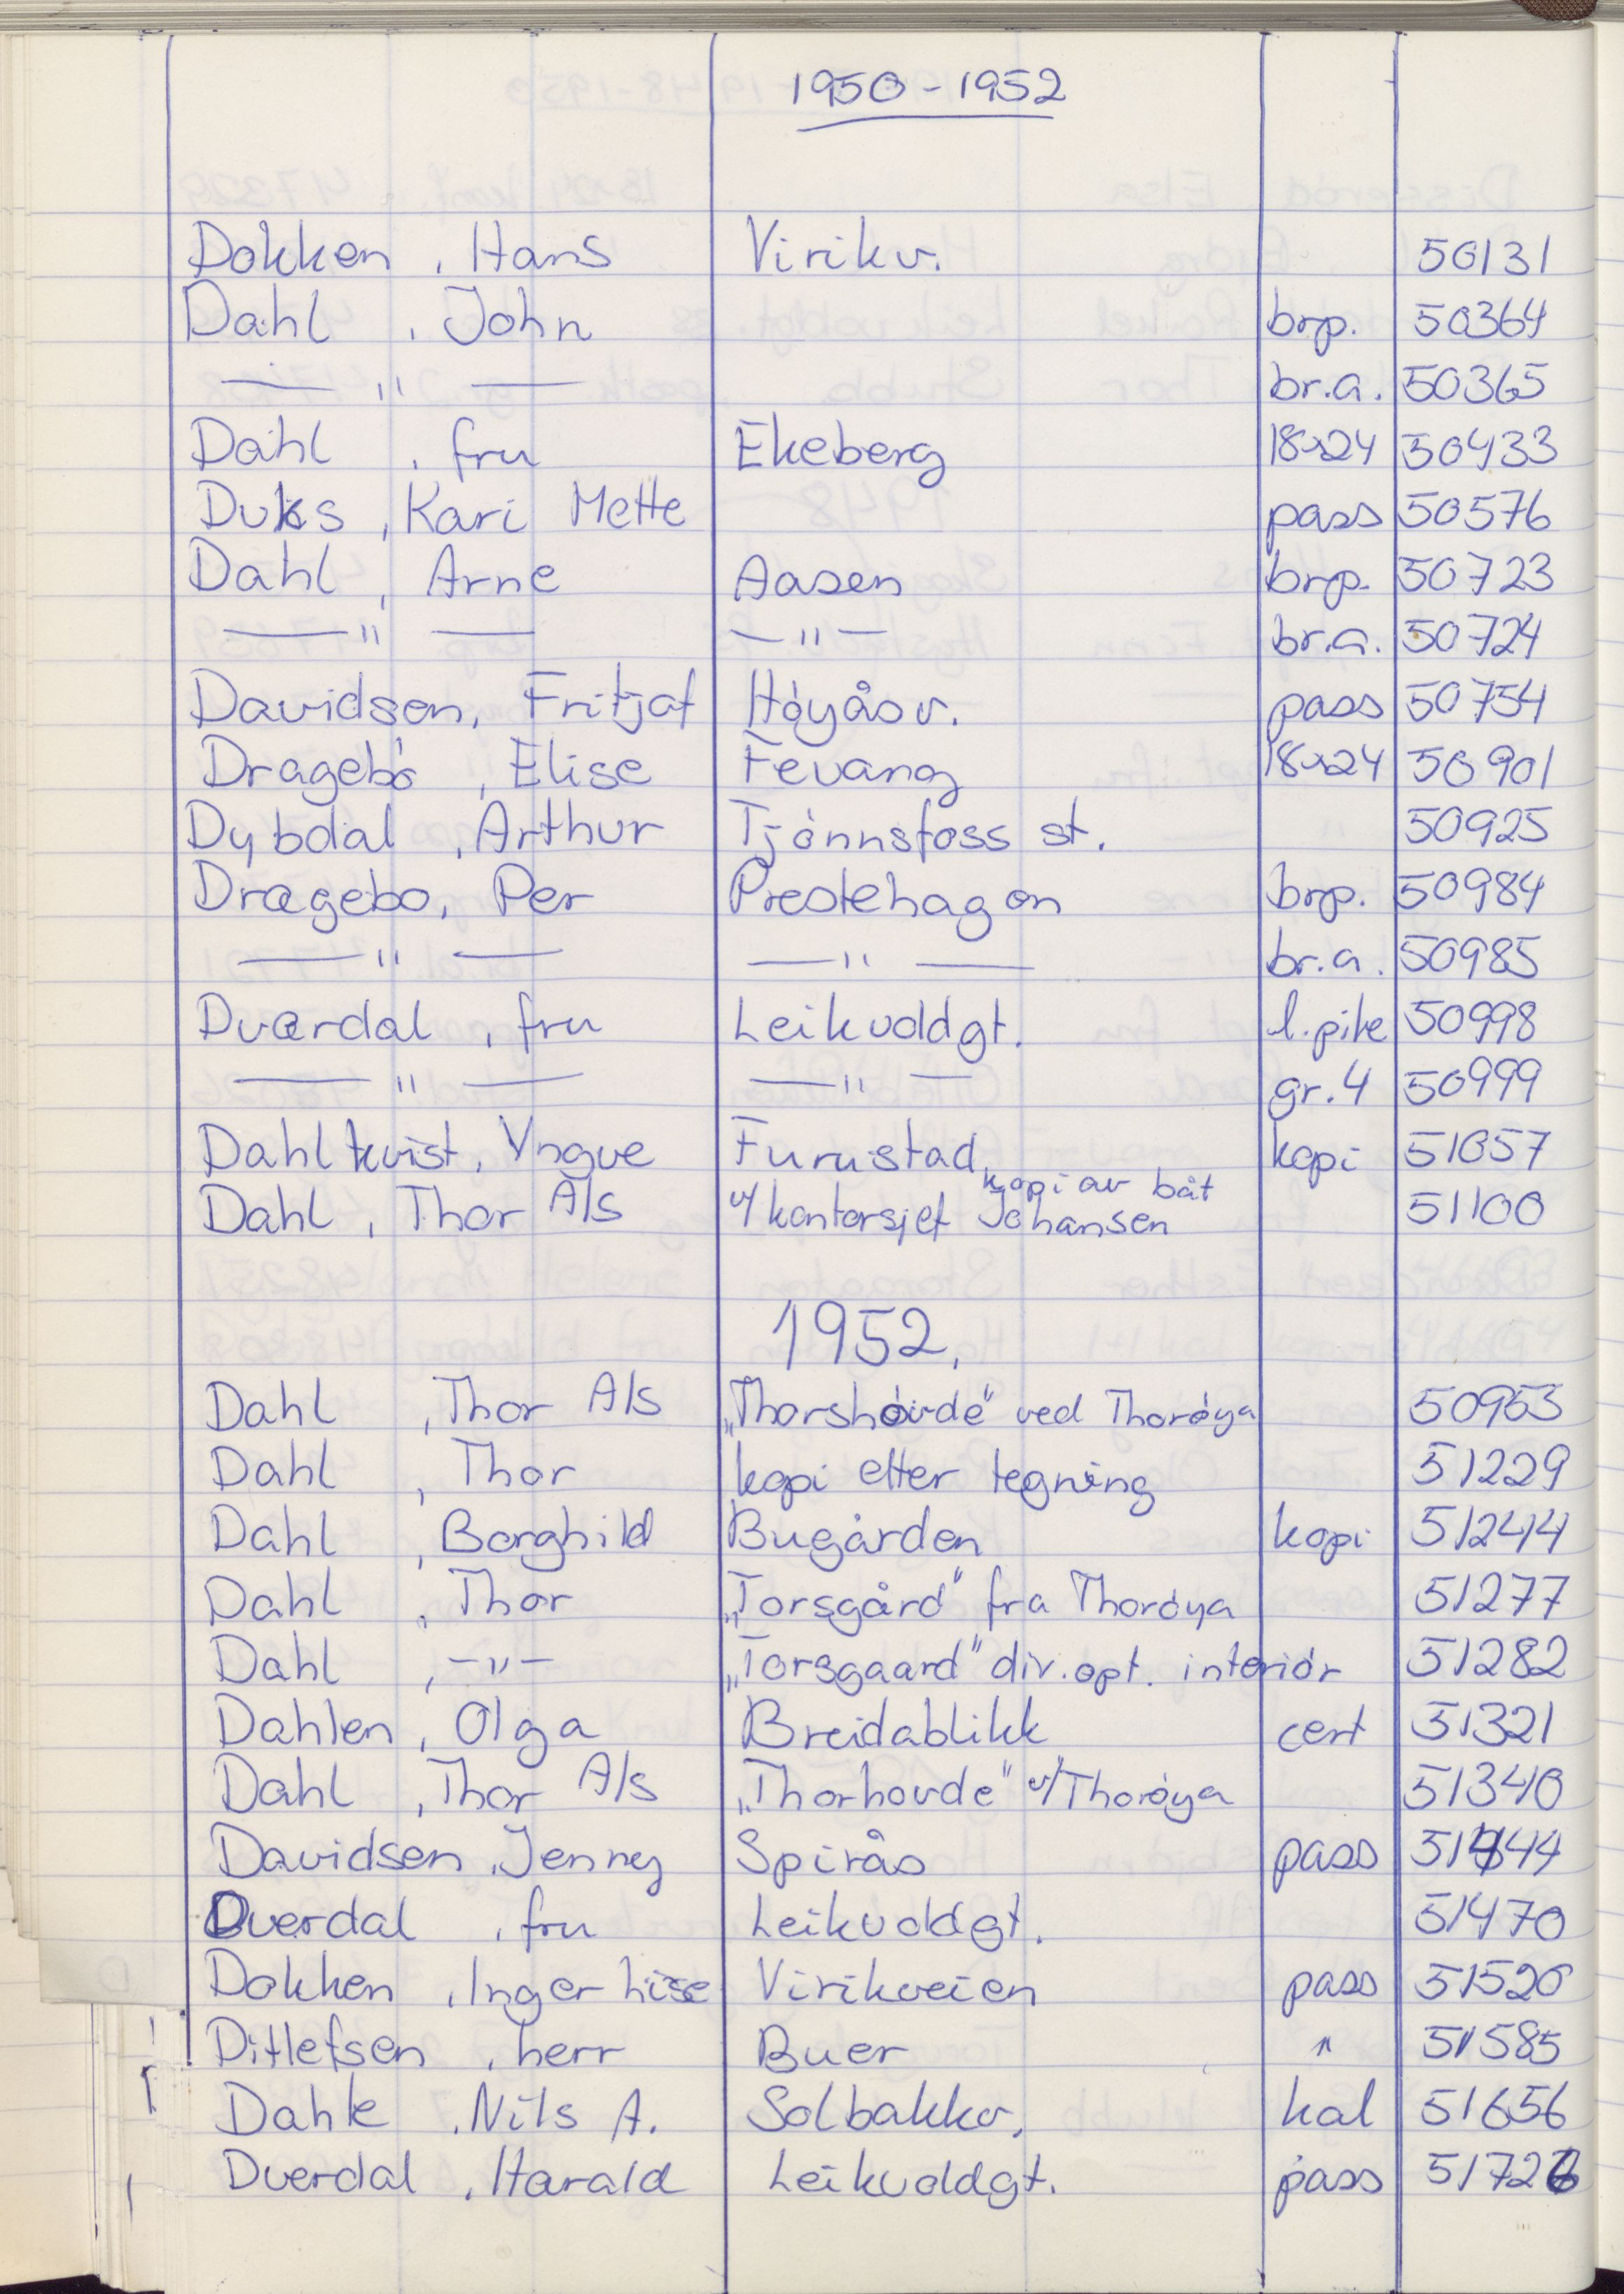 1950-1952
Dokken, Hans Virikv. 50131
Dahl, John brp. 50364
— " — br.a. 50365
Dahl, fru Ekeberg 18x24 50433
Duks, Kari Mette pass 50576
Dahl, Arne Aasen brp. 50723
— " — — " — br.a. 50724
Davidsen, Fritjof Høyåsv. pass 50754
Dragebø, Elise Fevang 18x24 50901
Dybdal, Arthur Tjønnsfoss st. 50925
Dragebo, Per Prestehagen brp. 50984
— " — — " — br.a. 50985
Dvardal, fru Leikvollgt. l.pike 50998
— " — — " — gr.4 50999
Dahlkvist, Yngve Furustad kopi 51057
kopi av båt
Dahl, Thor A/s v/kontorsjef Johansen 51100
1952.
Dahl, Thor A/s „Thorshøvde" ved Thorøya 50953
Dahl, Thor kopi etter tegning 51229
Dahl, Borghild Bugården kopi 51244
Dahl, Thor „Torsgård" fra Thorøya 51277
Dahl, -"- „Torsgaard" div. opt. interiør 51282
Dahlen, Olga Breidablikk cert 51321
Dahl, Thor A/s „Thorhovde" v/Thorøya 51340
Davidsen, Jenny Spirås pass 51444
Dverdal, fru Leikvollgt. 51470
Dokken, Inger Lise Virikveien pass 51520
Ditlefsen, herr Buer " 51585
Dahle, Nils A. Solbakkv. kal 51656
Dverdal, Harald Leikvollgt. pass 51726